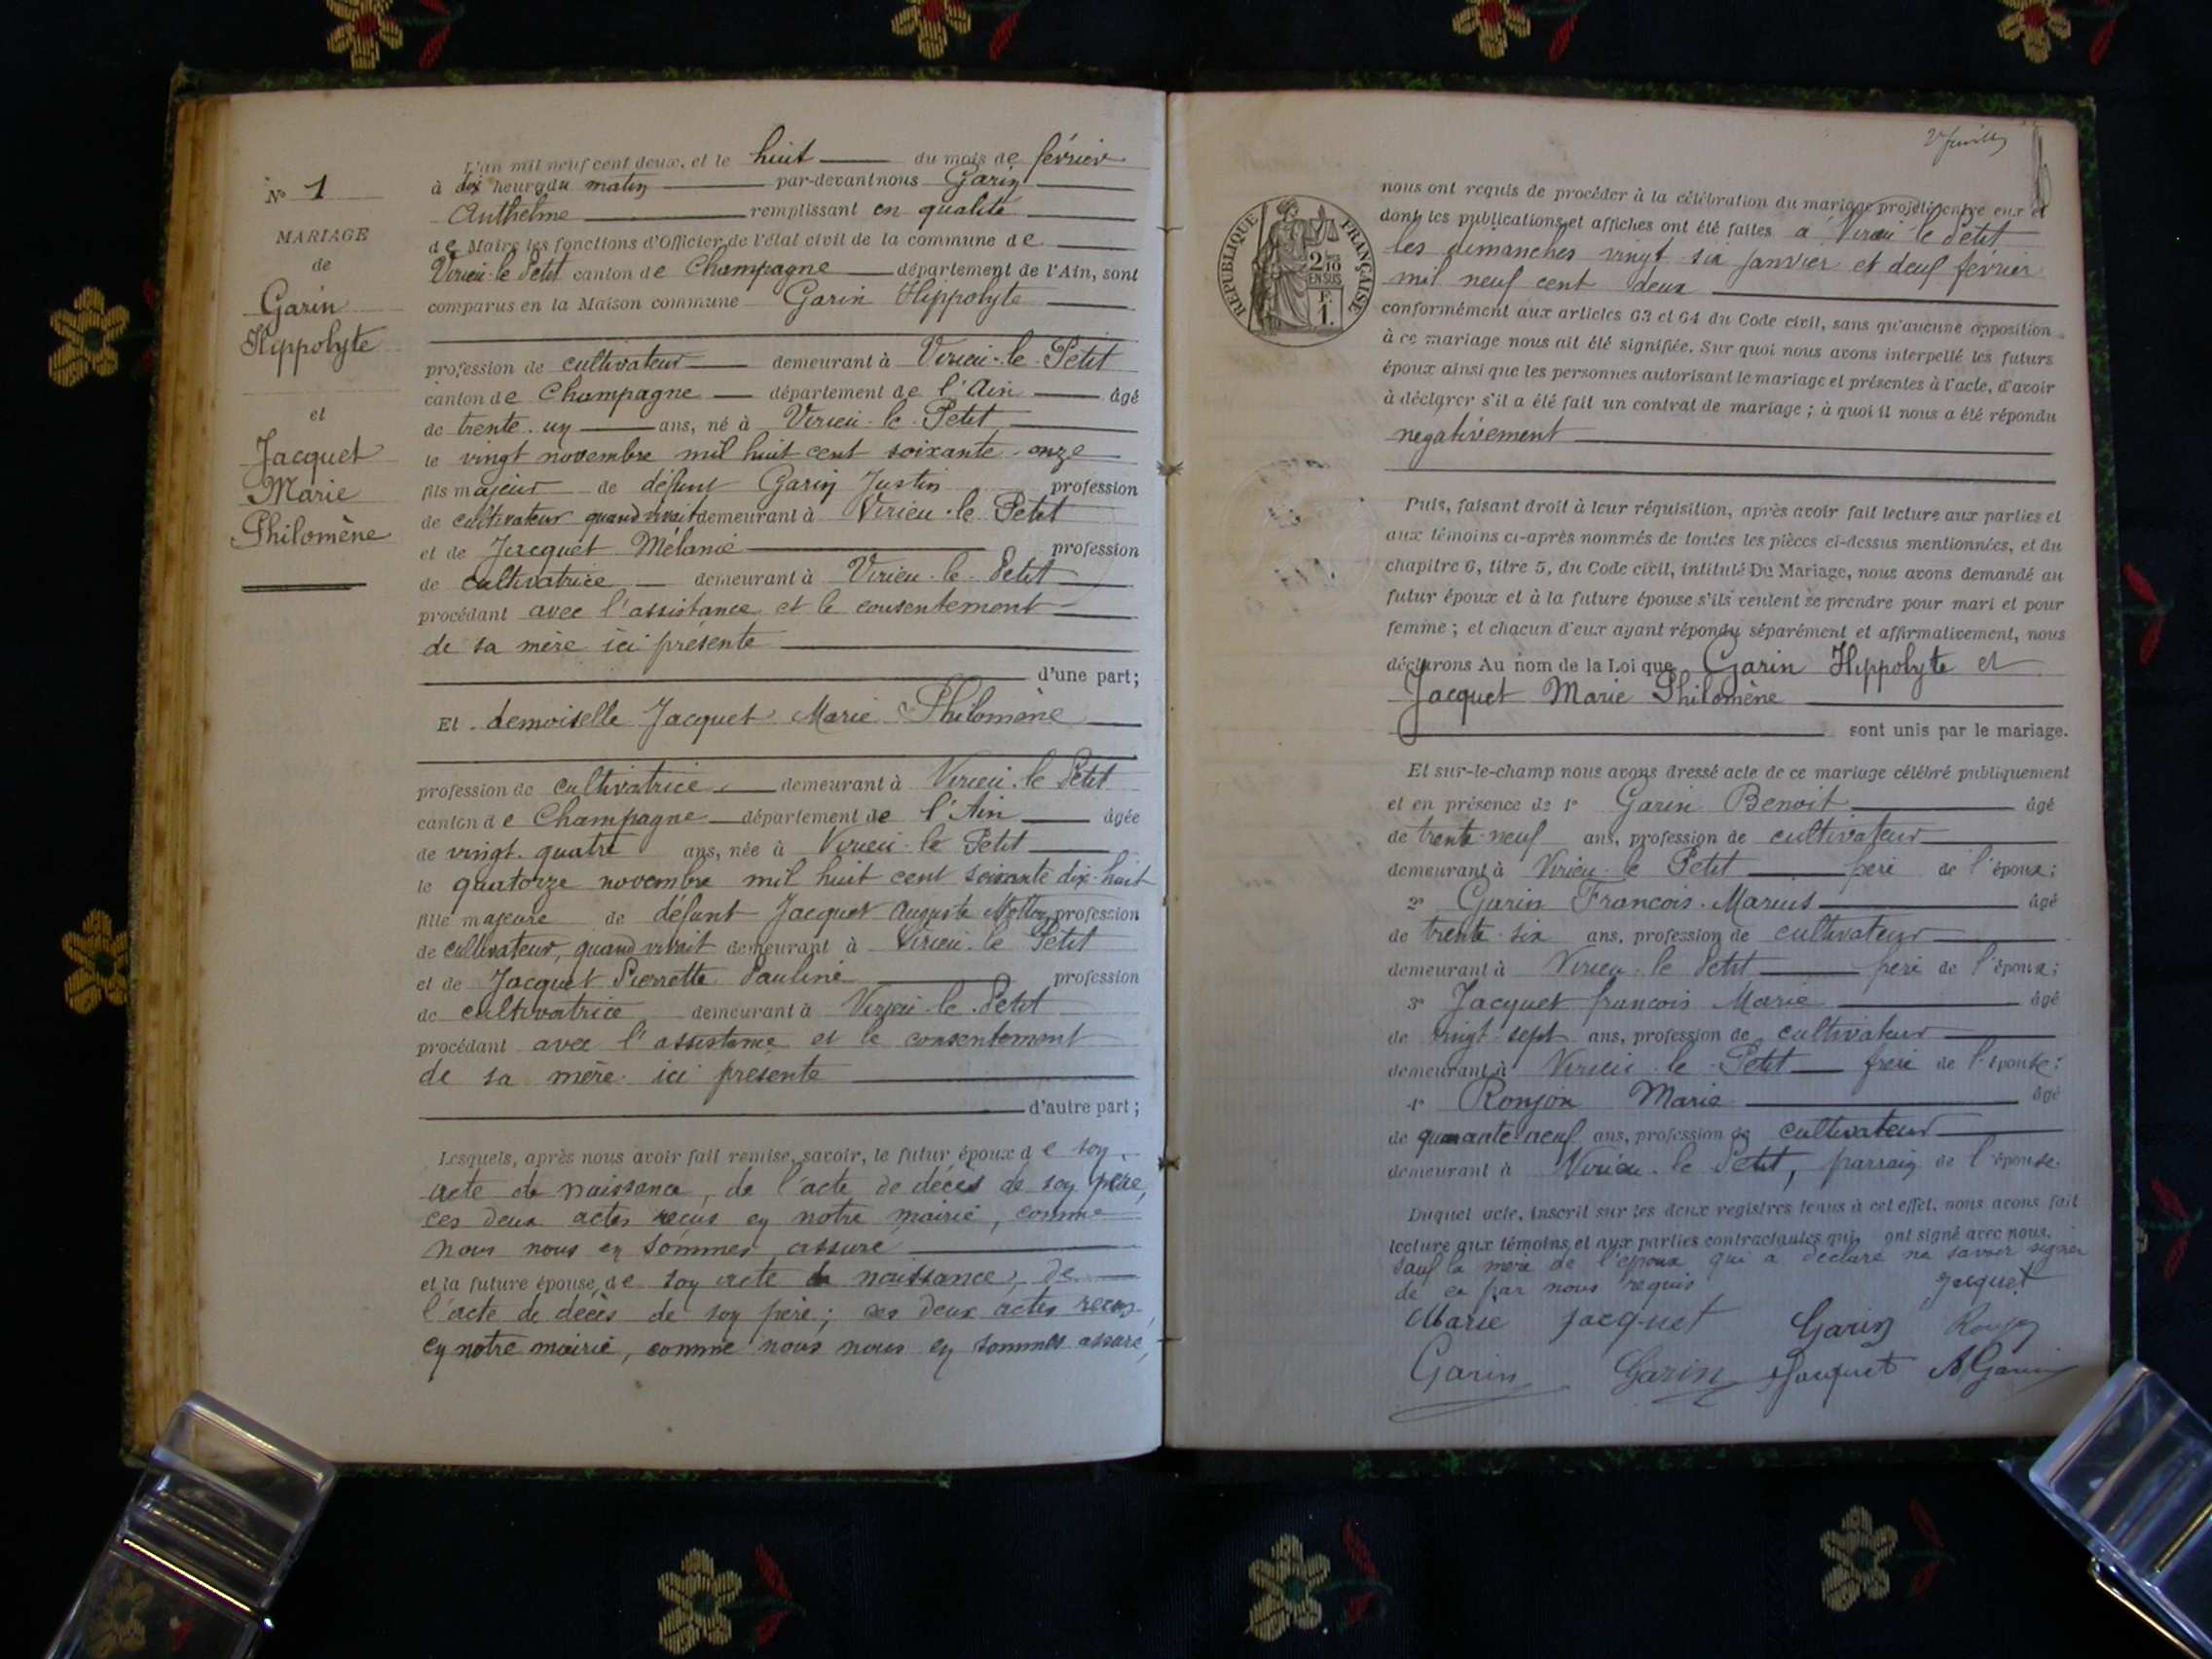 N° 1
MARIAGE
de
Garin
Hippolyte
et
Jacquet
Marie
Philomène
L'an mil neuf cent deux, et le huit du mois de février
à dix heures du matin par-devant nous Garin
Anthelme remplissant en qualité
de Maire les fonctions d'Officier de l'état civil de la commune de
Virieu-le-Petit canton de Champagne département de l'Ain, sont
comparus en la Maison commune Garin Hippolyte
profession de cultivateur demeurant à Virieu-le-Petit
canton de Champagne département de l'Ain âgé
de trente-un ans, né à Virieu-le-Petit
le vingt novembre mil huit cent soixante-onze
fils majeur de défunt Garin Justin profession
de cultivateur quand vivait demeurant à Virieu-le-Petit
et de Jacquet Mélanie profession
de cultivatrice demeurant à Virieu-le-Petit
procédant avec l'assistance et le consentement
de sa mère ici présente
d'une part;
Et demoiselle Jacquet Marie Philomène
profession de cultivatrice demeurant à Virieu-le-Petit
canton de Champagne département de l'Ain âgée
de vingt-quatre ans, née à Virieu-le-Petit
le quatorze novembre mil huit cent soixante dix-huit
fille majeure de défunt Jacquet Auguste profession
de cultivateur, quand vivait demeurant à Virieu-le-Petit
et de Jacquet Pierrette Pauline profession
de cultivatrice demeurant à Virieu-le-Petit
procédant avec l'assistance et le consentement
de sa mère ici presente
d'autre part;
Lesquels, après nous avoir fait remise, savoir, le futur époux de son
acte de naissance, de l'acte de décès de son père,
ces deux actes reçus en notre mairie, comme
nous nous en sommes assuré
et la future épouse, de son acte de naissance, de
l'acte de décès de son père; ces deux actes recus
en notre mairie, comme nous nous en sommes assuré,
2e feuillet
REPUBLIQUE FRANÇAISE
2/10
EN SUS
F.
1.
nous ont requis de procéder à la célébration du mariage projeté entre eux et
dont les publications et affiches ont été faites à Virieu le Petit
les dimanches vingt six janvier et deux février
mil neuf cent deux
conformément aux articles 63 et 64 du Code civil, sans qu'aucune opposition
à ce mariage nous ait été signifiée. Sur quoi nous avons interpellé les futurs
époux ainsi que les personnes autorisant le mariage et présentes à l'acte, d'avoir
à déclarer s'il a été fait un contrat de mariage; à quoi il nous a été répondu
negativement
Puis, faisant droit à leur réquisition, après avoir fait lecture aux parties et
aux témoins ci-après nommés de toutes les pièces ci-dessus mentionnées, et du
chapitre 6, titre 5, du Code civil, intitulé Du Mariage, nous avons demandé au
futur époux et à la future épouse s'ils veulent se prendre pour mari et pour
femme; et chacun d'eux ayant répondu séparément et affirmativement, nous
déclarons Au nom de la Loi que Garin Hippolyte et
Jacquet Marie Philomène
sont unis par le mariage.
Et sur-le-champ nous avons dressé acte de ce mariage célébré publiquement
et en présence de 1° Garin Benoit âgé
de trente-neuf ans, profession de cultivateur
demeurant à Virieu-le Petit frere de l'époux;
2° Garin Francois-Marius âgé
de trente-six ans, profession de cultivateur
demeurant à Virieu-le Petit frere de l'époux;
3° Jacquet francois Marie âgé
de vingt-sept ans, profession de cultivateur
demeurant à Virieu-le-Petit frere de l'épouse;
4° Ronjon Marie âgé
de quarante-neuf ans, profession de cultivateur
demeurant à Virieu-le Petit, parrain de l'épouse.
Duquel acte, inscrit sur les deux registres tenus à cet effet, nous avons fait
lecture aux témoins et aux parties contractantes qui ont signé avec nous.
sauf la mere de l'époux qui a declaré ne savoir signer
de ce par nous requis
Jacquet
Marie Jacquet Garin Ronjon
Garin Garin Jacquet A Garin